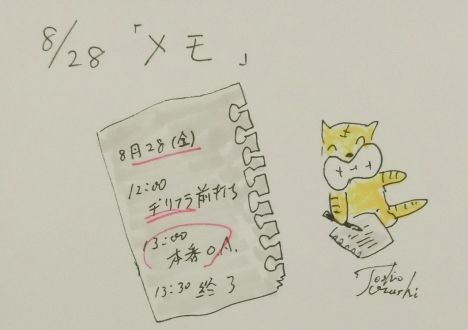 8/28 「メモ」
8月28(金)
12:00
ギリフラ前打ち
13:00
本番O.A.
13:30 終了
Toshio